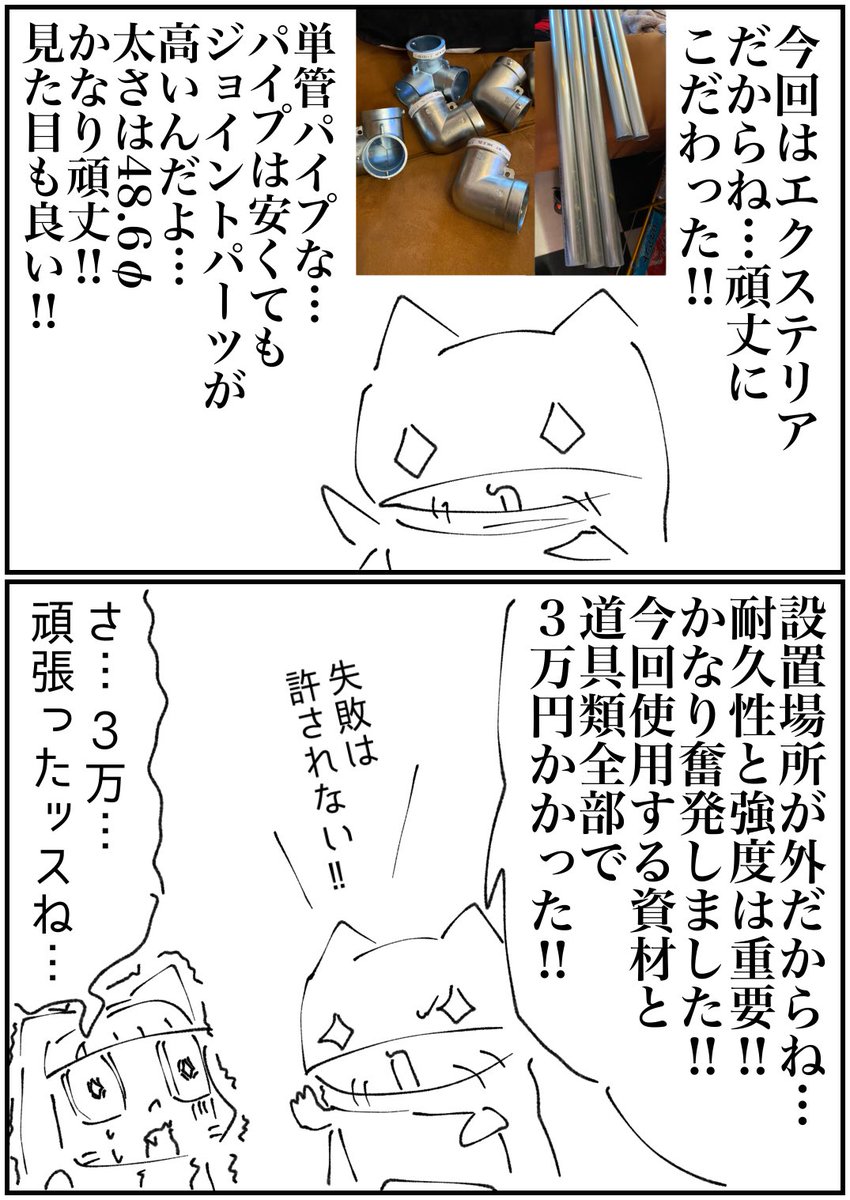 今回はエクステリア
だからね…頑丈に
こだわった!!
単管パイプな…
パイプは安くても
ジョイントパーツが
高いんだよ…
太さは48.6φ
かなり頑丈!!
見た目も良い!!
設置場所が外だからね…
耐久性と強度は重要!!
かなり奮発しました!!
今回使用する資材と
道具類全部で
3万円かかった!!
失敗は
許されない!!
さ…3万…
頑張ったッスね…